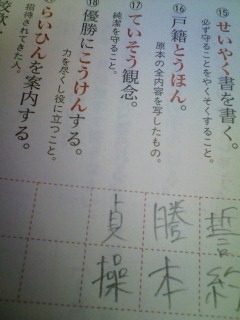 ⑮せいやく書を書く。
必ず守ることをやくそくすること。
⑯戸籍とうほん。
原本の全内容を写したもの。
⑰ていそう観念。
純潔を守ること。
⑱優勝にこうけんする。
力を尽くし役に立つこと。
らいひんを案内する。
招待されてきた人。
誓約
謄本
貞操